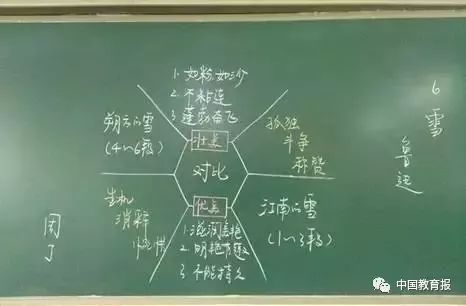 6
雪
鲁迅
1. 如粉,如沙
2. 不粘连
3. 蓬勃奋飞
朔方的雪
(4~6段)
壮美
孤独
斗争
称赞
对比
生机
消释
优美
1. 滋润美艳
2. 明艳有趣
3. 不能持久
江南的雪
(1~3段)
中国教育报